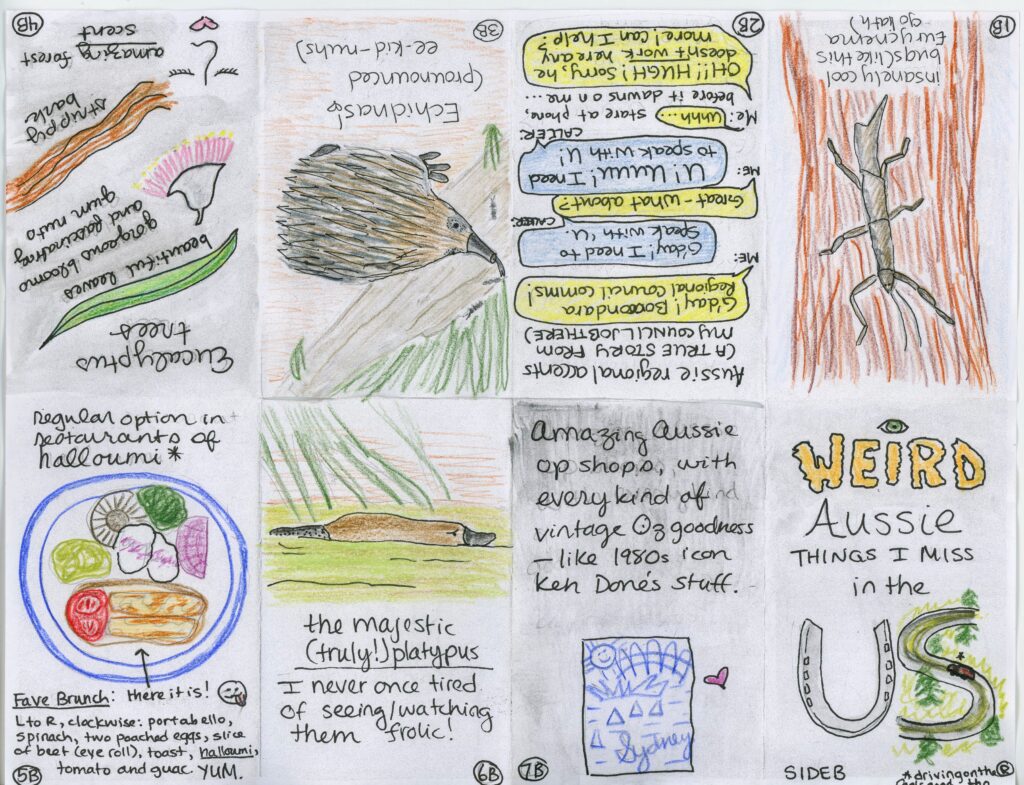 Eucalyptus
trees
beautiful leaves
gorgeous blooms
and fascinating
gum nuts
strippy
bark
amazing forest
scent
4B
Echidnas!
(pronounced
ee-kid-nuhs)
3B
Aussie regional accents
(A TRUE STORY FROM
MY COUNCIL JOB THERE)
ME:
G'day! Boooondara
Regional Council comms!
CALLER:
G'day! I need to
speak with 'U.
ME:
Great - what about?
CALLER:
U! Uuuu! I need
to speak with U!
Me: Uhhh... stare at phone,
before it dawns on me...
OH!!! HUGH! Sorry, he
doesn't work here any
more! Can I help?
2B
Insanely cool
bugs (like this
Eurycnema
goliath)
1B
regular option in
restaurants of
halloumi*
Fave Brunch: there it is!
L to R, clockwise: portabello,
spinach, two poached eggs, slice
of beet (eye roll), toast, halloumi,
tomato and guac. YUM.
5B
the majestic
(truly!) platypus
I never once tired
of seeing/watching
them frolic!
6B
Amazing Aussie
op shops, with
every kind of
vintage Oz goodness
- like 1980s icon
Ken Done's stuff.
Sydney
7B
WEIRD
Aussie
THINGS I MISS
in the
US
*
SIDE B
*driving on the R